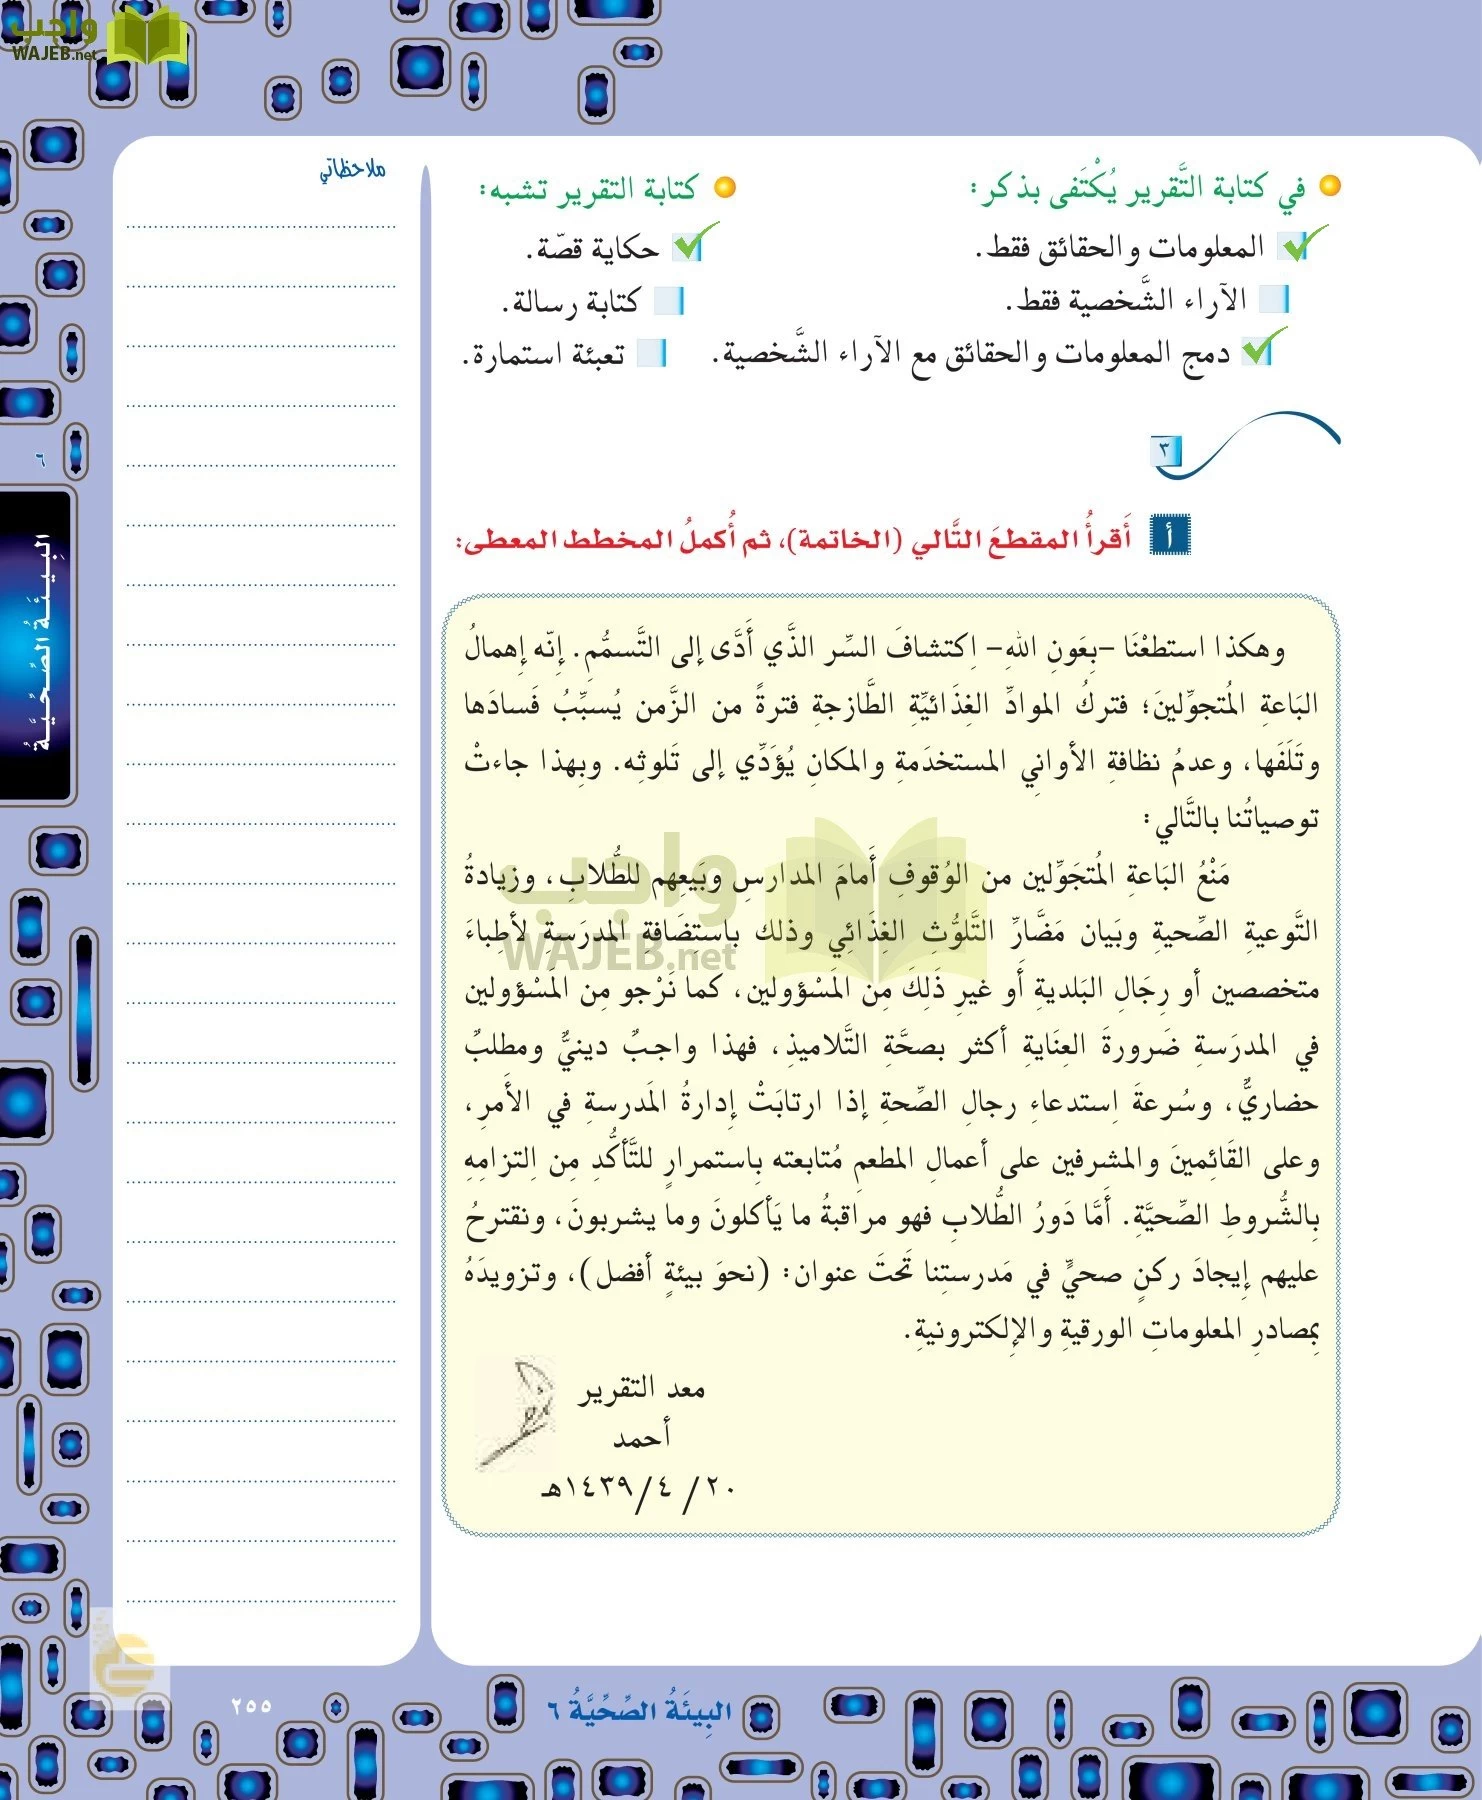 واجب
WAJEB.net
في كتابة التَّقرير يُكْتَفى بذكر:
المعلومات والحقائق فقط.
الآراء الشَّخصية فقط.
دمج المعلومات والحقائق مع الآراء الشَّخصية.
كتابة التقرير تشبه:
حكاية قصّة.
كتابة رسالة.
تعبئة استمارة.
ملاحظاتي
٣
أ أَقرأُ المقطعَ التَّالي (الخاتمة)، ثم أُكملُ المخطط المعطى:
وهكذا استطعْنَا –بِعَونِ اللهِ– اِكتشافَ السِّر الذَّي أَدَّى إلى التَّسمُّمِ. إنّه إهمالُ
البَاعةِ المُتجوِّلينَ؛ فتركُ الموادِّ الغِذَائيِّةِ الطَّازجةِ فترةً من الزَّمن يُسبِّبُ فَسادَها
وتَلَفَها، وعدمُ نظافةِ الأواني المستخدَمةِ والمكانِ يُؤَدِّي إلى تَلوثِه. وبِهذا جاءتْ
توصياتُنا بالتَّالي:
مَنْعُ البَاعةِ المُتجَوِّلين من الوُقوفِ أَمامَ المدارسِ وبَيعِهم للطُّلابِ، وزيادةُ
التَّوعيةِ الصِّحيةِ وبَيان مَضَّارِّ التَّلوُّثِ الغِذَائِي وذلك باستِضَافةِ المدرَسةِ لأطِباءَ
متخصصين أو رِجَالِ البَلديةِ أَو غيرِ ذَلِكَ مِن المَسْؤولين، كما نَرْجو مِن المَسْؤولين
في المدرَسةِ ضَرورةَ العِنَايةِ أكثر بصحَّةِ التَّلاميذِ، فهذا واجبٌ دينيٌّ ومطلبٌ
حضاريٌّ، وسُرعةَ اِستدعاءِ رجالِ الصِّحةِ إذا ارتابَتْ إدارةُ المَدرسةِ في الأَمرِ،
وعلى القَائِمينَ والمشرفين على أعمالِ المطعمِ مُتابعته بِاستمرارٍ للتَّأكُّدِ مِن اِلتزامِهِ
بِالشُّروطِ الصِّحيَّةِ. أَمَّا دَورُ الطُّلابِ فهو مراقبةُ ما يَأكلونَ وما يشربونَ، ونقترحُ
عليهم إيجادَ ركنٍ صحيٍّ في مَدرستِنا تَحتَ عنوان: (نحوَ بيئةٍ أفضل)، وتزويدَهُ
بِمصادرِ المعلوماتِ الورقيةِ والإلكترونيةِ.
واجب
WAJEB.net
معد التقرير
أحمد
٢٠/ ٤/ ١٤٣٩هـ
٦
البِيئَةُ الصِّحِّيَّةُ
البِيئَةُ الصِّحِّيَّةُ ٦
٢٥٥